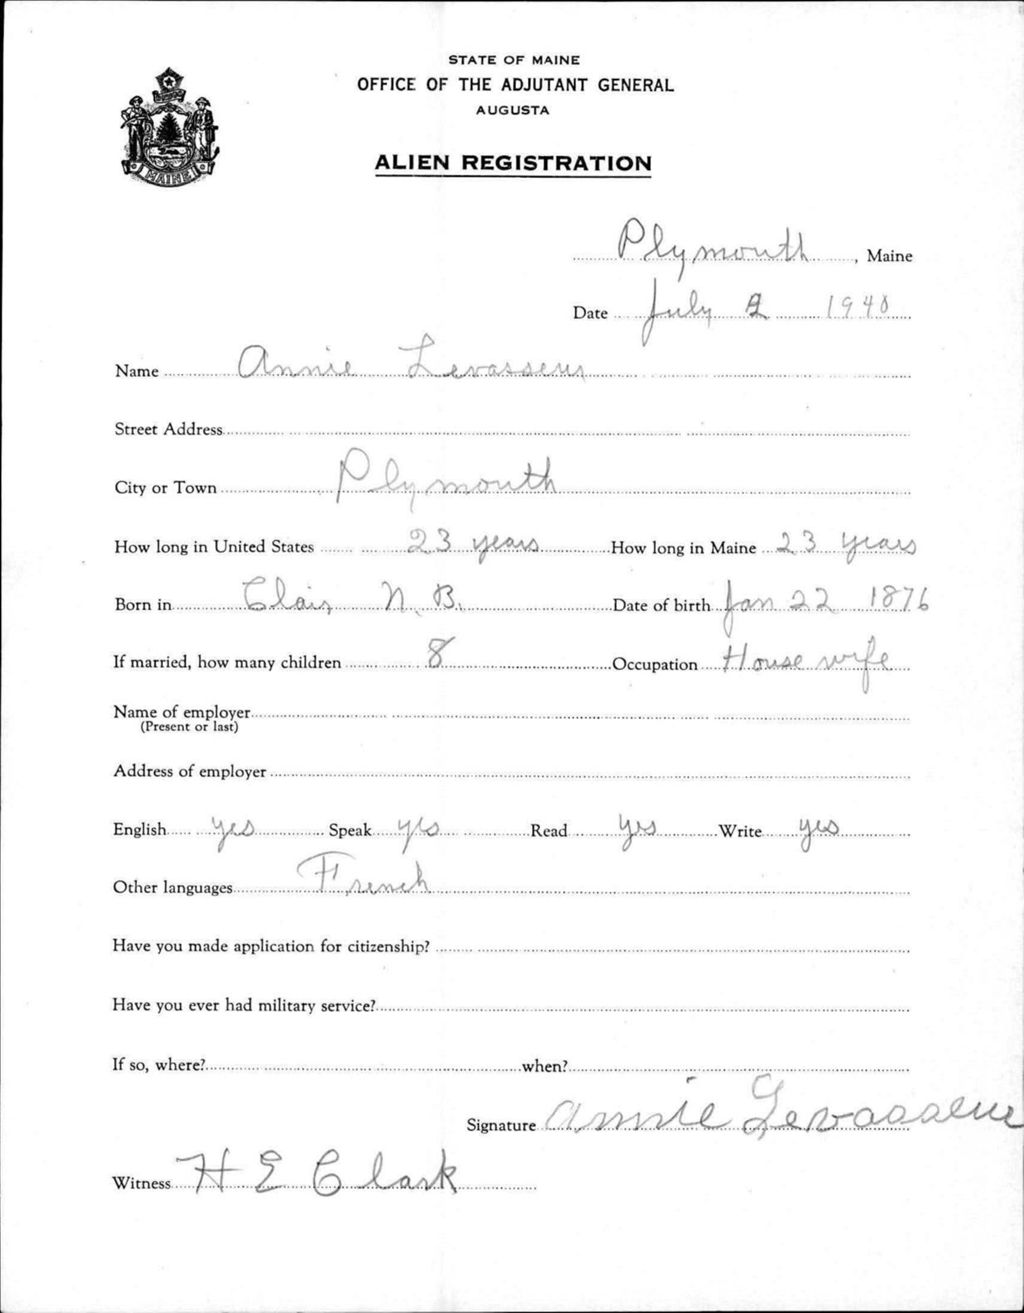 STATE OF MAINE
OFFICE OF THE ADJUTANT GENERAL
AUGUSTA
ALIEN REGISTRATION
MAINE
Plymouth, Maine
Date July 2 1940
Name Annie Levasseur
Street Address
City or Town Plymouth
How long in United States 23 years How long in Maine 23 years
Born in Clair, N. B. Date of birth Jan 22 1876
If married, how many children 8 Occupation House wife
Name of employer
(Present or last)
Address of employer
English yes Speak yes Read yes Write yes
Other languages French
Have you made application for citizenship?
Have you ever had military service?
If so, where? when?
Signature Annie Levasseur
Witness H E Clark